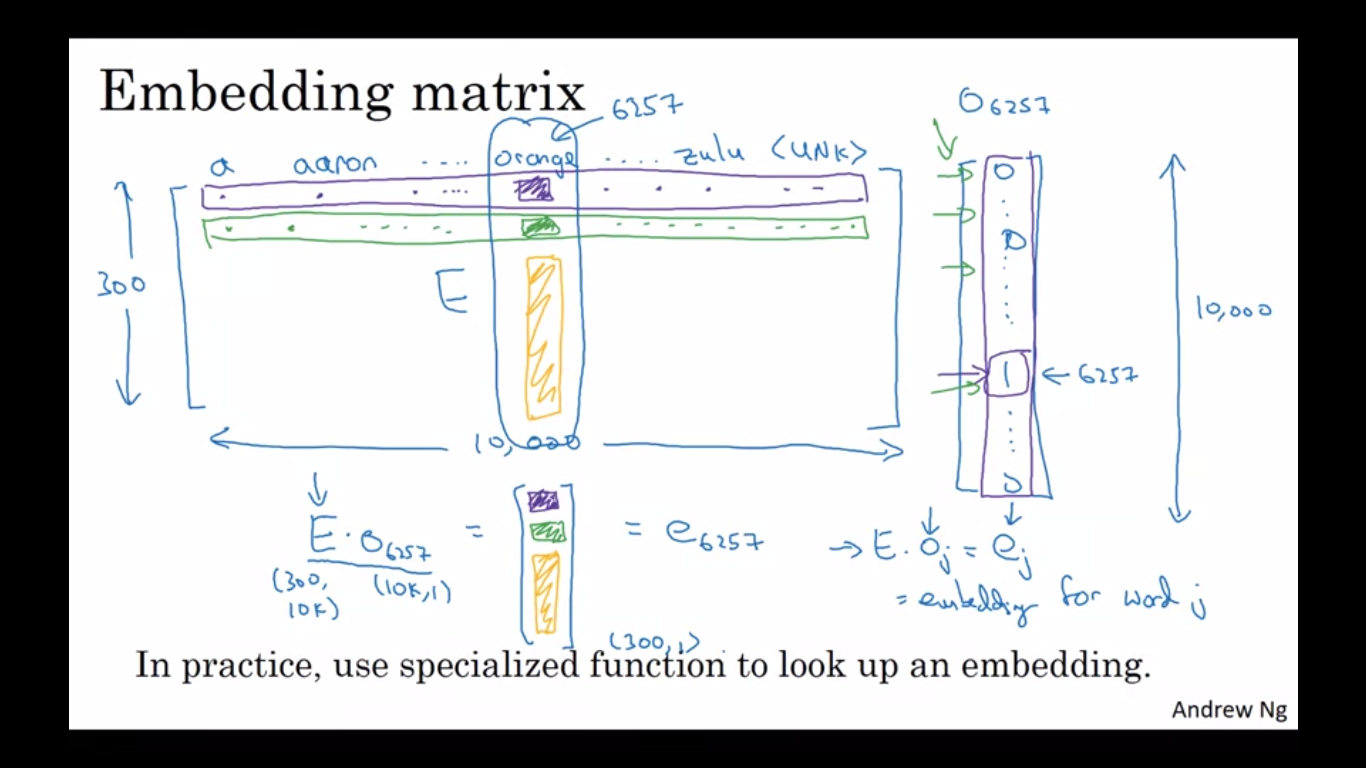 Embedding matrix
6257
O6257
a aaron ..... orange ..... zulu <UNK>
300
E
10,000
0
0
1 ← 6257
0
10,000
E · O6257 = [ ] = e6257
(300, 10K) (10K, 1)
(300, 1)
→ E. Oj = ej
= embedding for word j
In practice, use specialized function to look up an embedding.
Andrew Ng